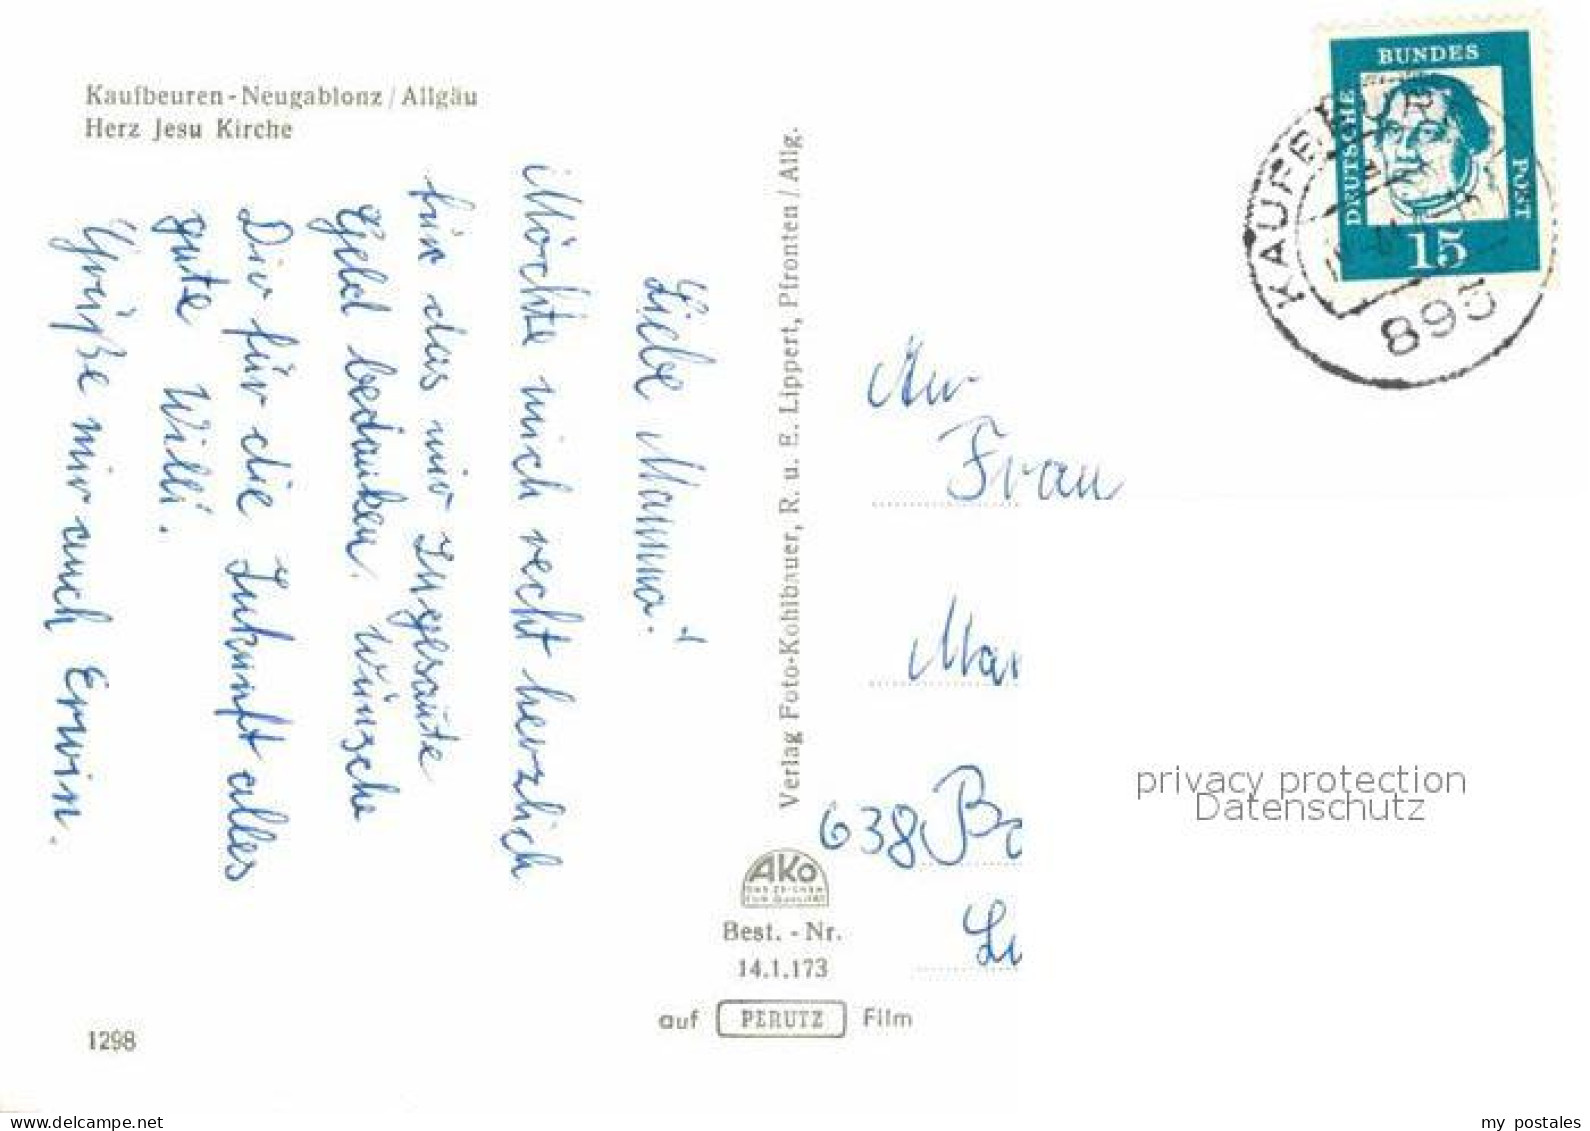 Kaufbeuren-Neugablonz / Allgäu
Herz Jesu Kirche
Liebe Mamma!
Möchte mich recht herzlich
für das mir Zugesante
Geld bedanken. Wünsche
Dir für die Zukunft alles
gute Willi.
Grüße mir auch Erwin.
1298
Verlag Foto-Kohlbauer, R. u. E. Lippert, Pfronten / Allg.
AKO
DAS ZEICHEN
FÜR QUALITÄT
Best. - Nr.
14.1.173
auf PERUTZ Film
DEUTSCHE BUNDES POST
15
KAUFBEUR
895
An
Frau
Ma
638 B
privacy protection
Datenschutz
my postales